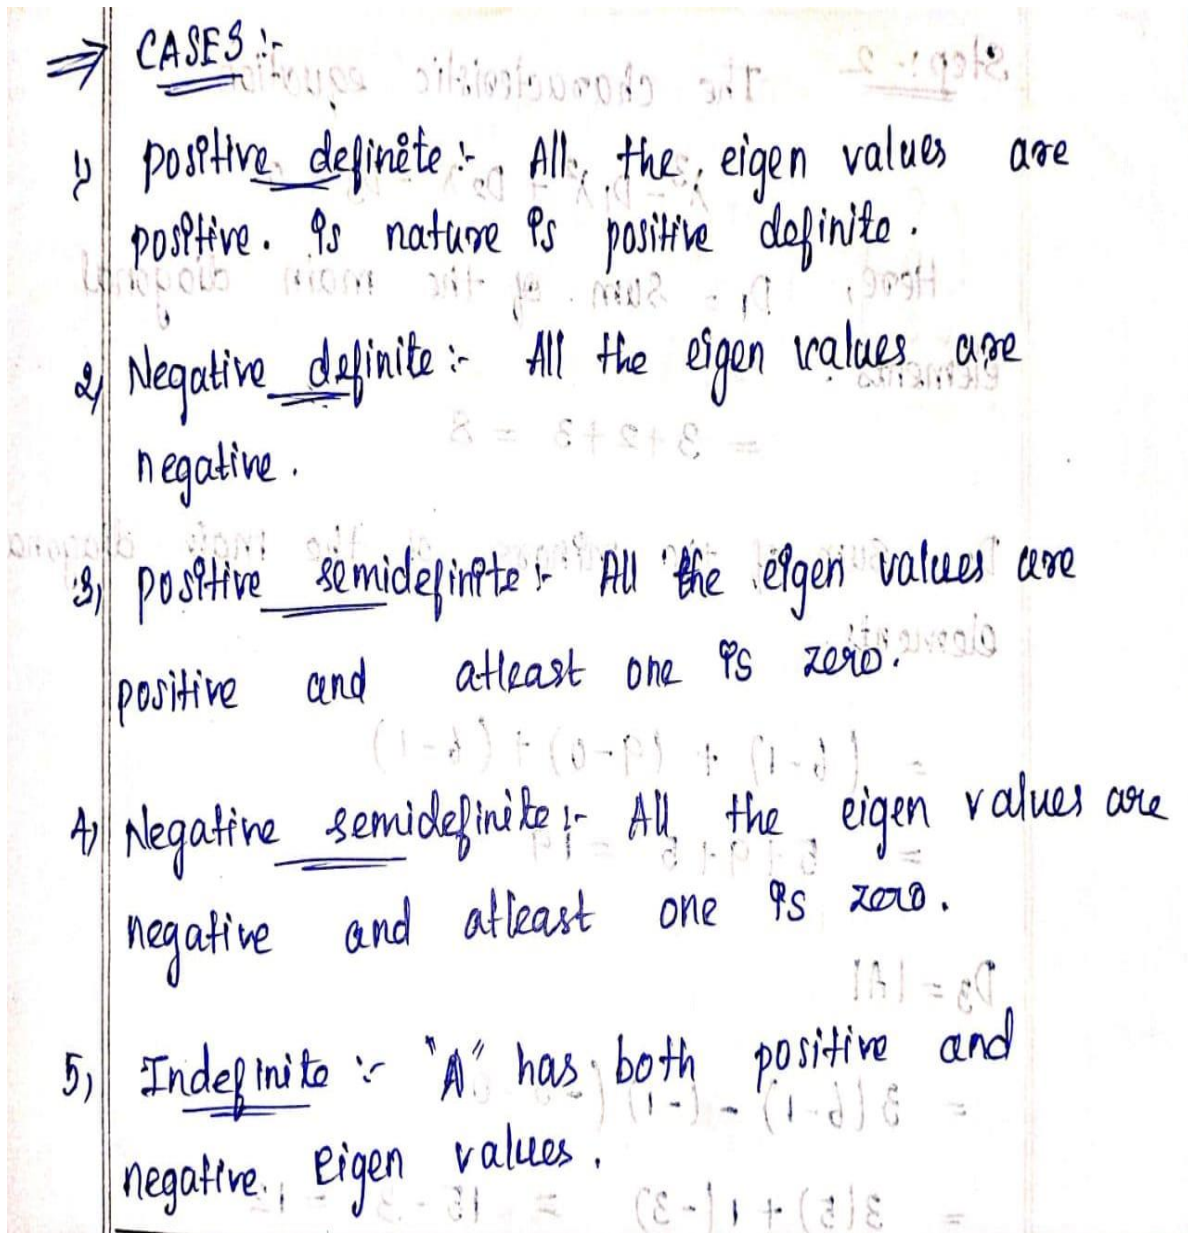 ⇒ CASES :-
1) positive definite :- All the eigen values are
positive. is nature is positive definite.
2) Negative definite :- All the eigen values are
negative.
3) positive semidefinite :- All the eigen values are
positive and atleast one is zero.
4) Negative semidefinite :- All the eigen values are
negative and atleast one is zero.
5) Indefinite :- "A" has both positive and
negative eigen values.